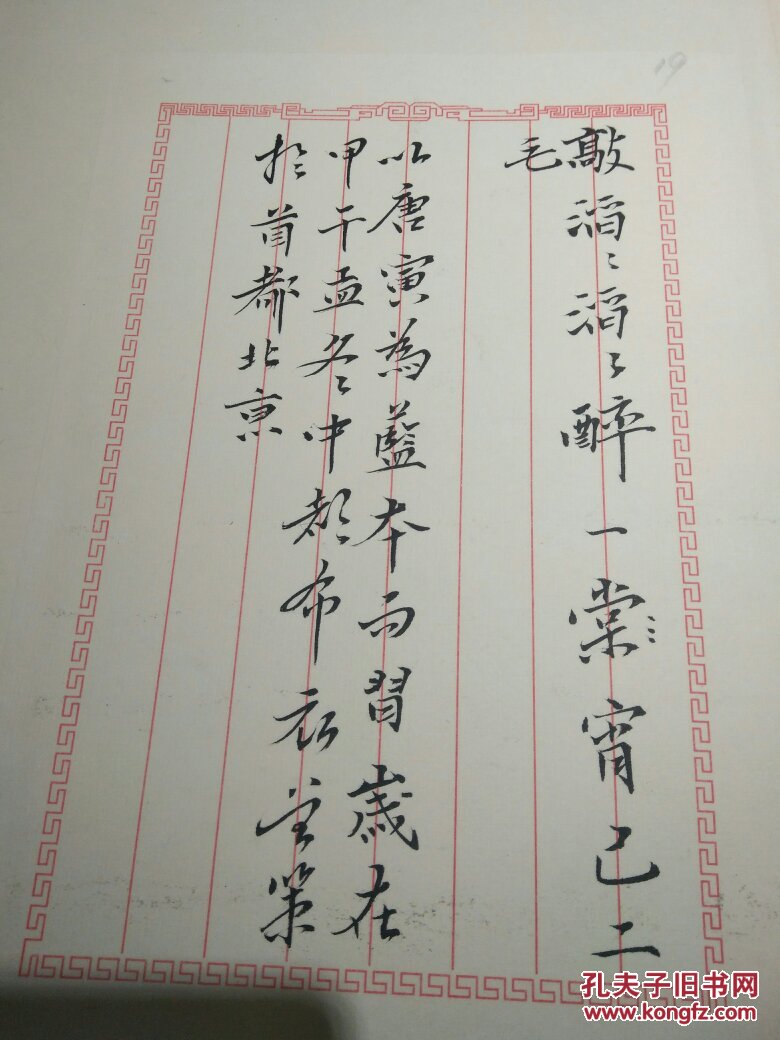 敲滔〻滔〻醉一棠〻宵已二
毛
以唐寅為藍本而習歲在
甲午孟冬〻中都布衣宝策
於首都北京
19
孔夫子旧书网
www.kongfz.com